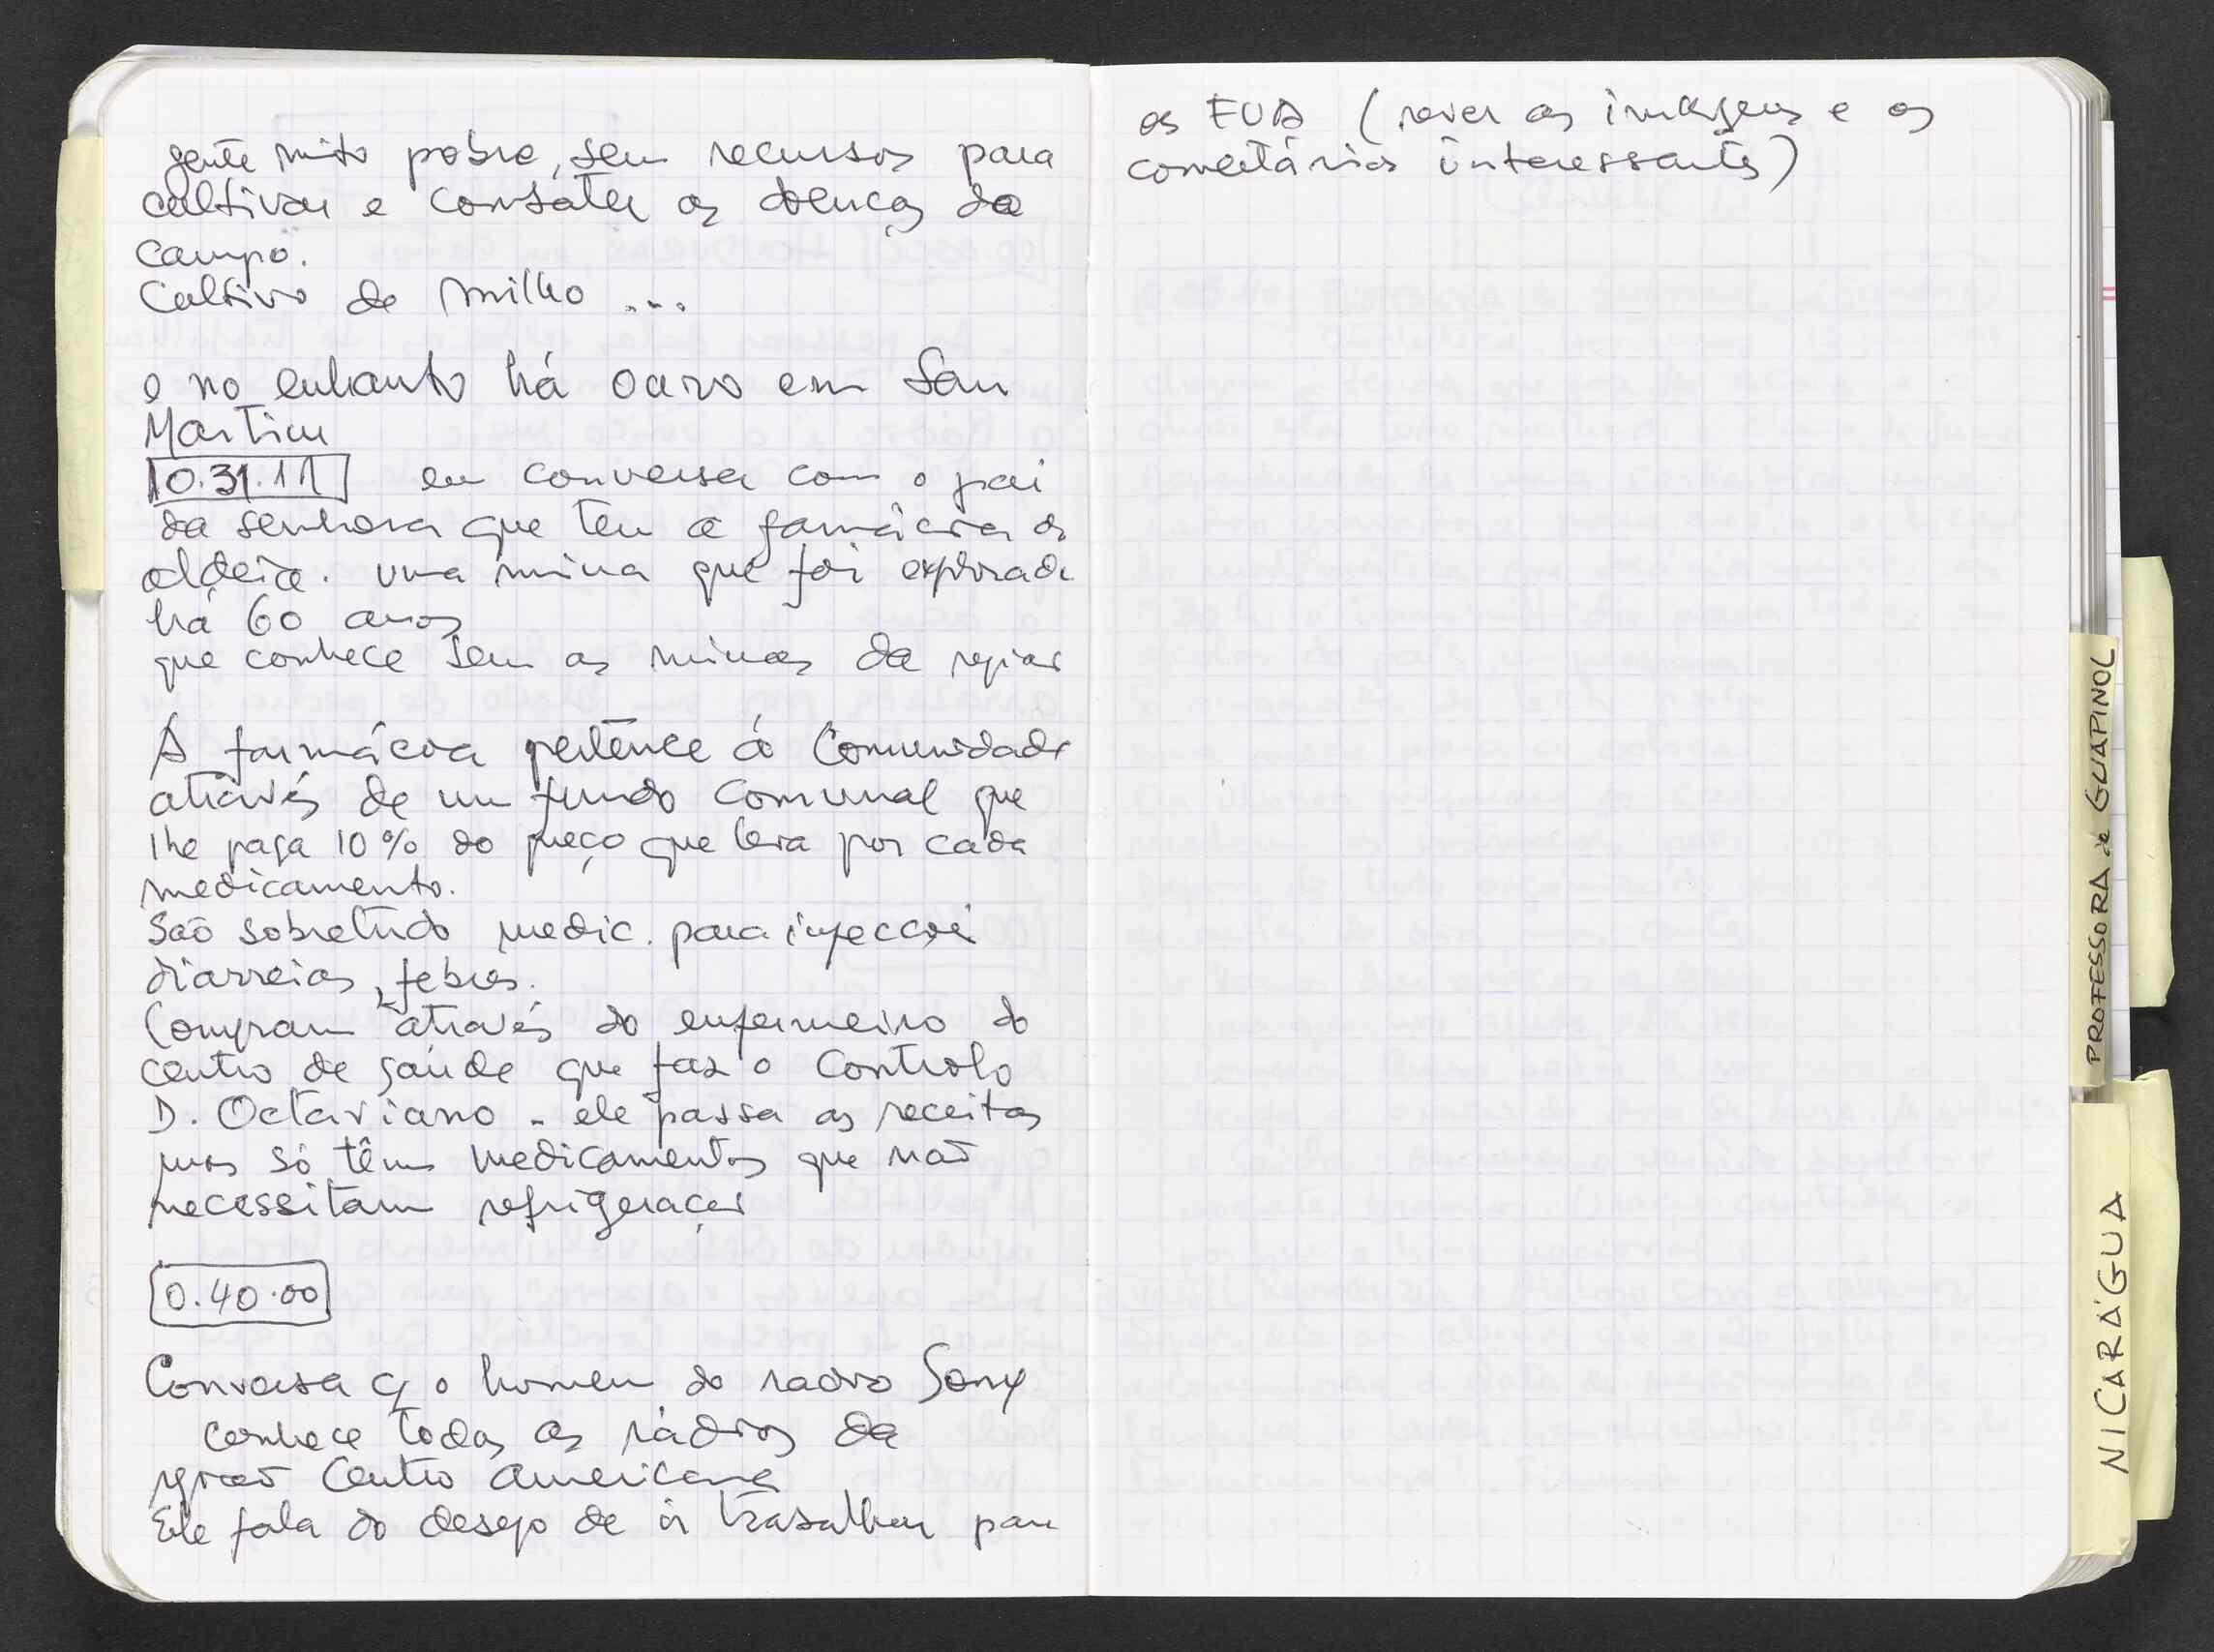 gente muito pobre, sem recursos para
cultivar e combater as doenças do
campo.
Cultivo de milho ...
e no entanto há ouro em San
Martin
0.31.11 em conversa com o pai
da senhora que tem a farmácia da
aldeia. uma mina que foi explorada
há 60 anos
que conhece bem as minas da região
A farmácia pertence à Comunidade
através de um fundo comunal que
lhe paga 10% do preço que leva por cada
medicamento.
São sobretudo medic. para infecções
diarreias, febres.
Compram através do enfermeiro do
centro de saúde que faz o controlo
D. Octaviano - ele passa as receitas
mas só têm medicamentos que não
necessitam refrigeração
0.40.00
Conversa c/ o homem do radio Sony
conhece todas as rádios da
região Centro Americana
Ele fala do desejo de ir trabalhar para
os EUA (rever as imagens e os
comentários interessantes)
PROFESSORA de GUAPINOL
NICARÁGUA